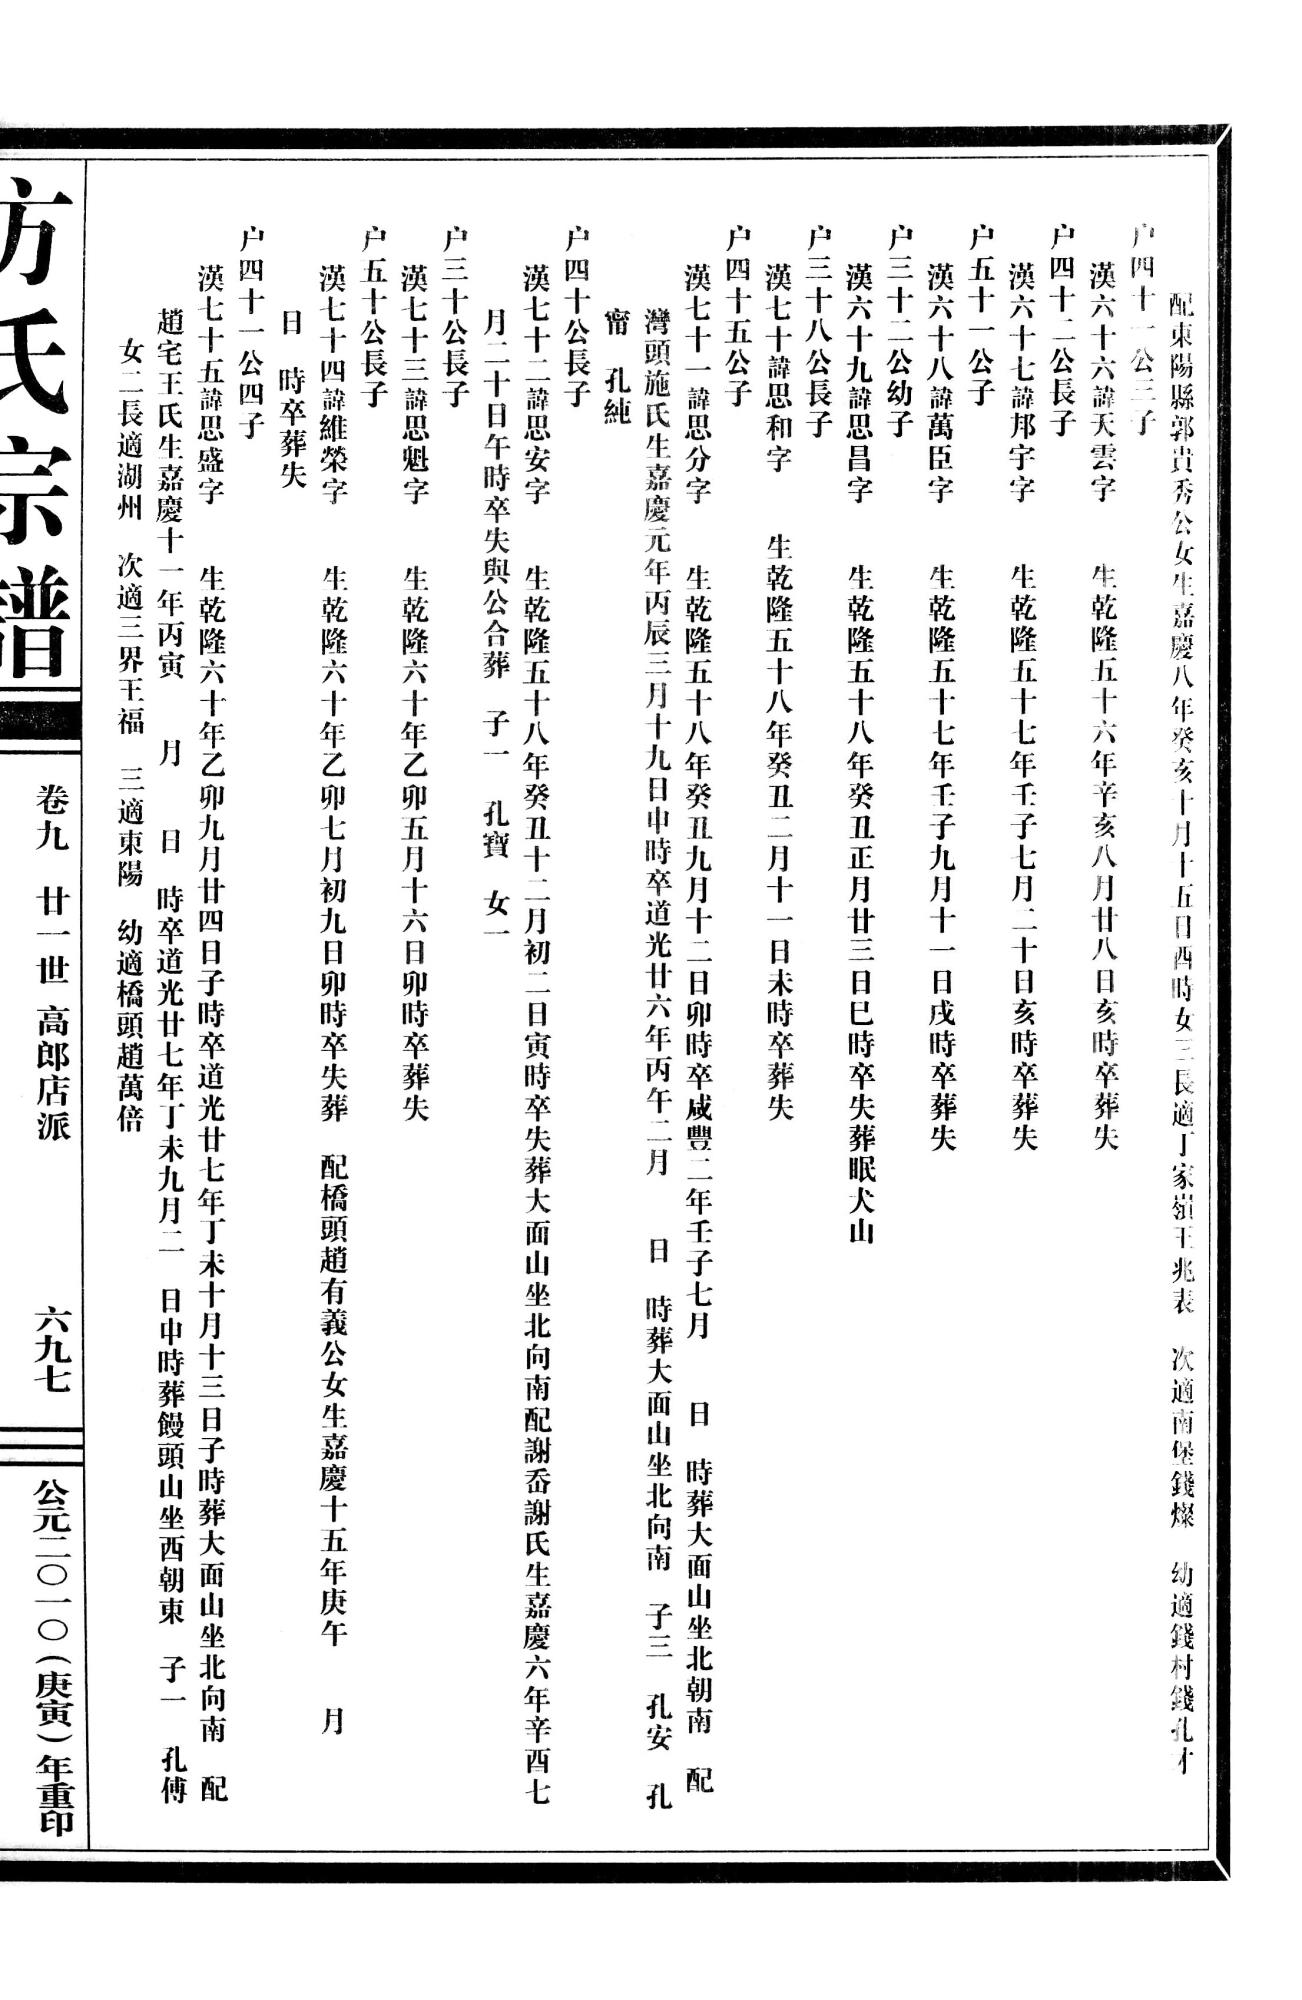 配東陽縣郭貴秀公女生嘉慶八年癸亥十月十五日酉時女三長適丁家嶺王兆表　次適南堡錢燦　幼適錢村錢孔才
户四十一公三子
漢六十六諱天雲字　生乾隆五十六年辛亥八月廿八日亥時卒葬失
户四十二公長子
漢六十七諱邦宇字　生乾隆五十七年壬子七月二十日亥時卒葬失
户五十一公子
漢六十八諱萬臣字　生乾隆五十七年壬子九月十一日戌時卒葬失
户三十二公幼子
漢六十九諱思昌字　生乾隆五十八年癸丑正月廿三日巳時卒失葬眠犬山
户三十八公長子
漢七十諱思和字　生乾隆五十八年癸丑二月十一日未時卒葬失
户四十五公子
漢七十一諱思分字　生乾隆五十八年癸丑九月十二日卯時卒咸豐二年壬子七月　日　時葬大面山坐北朝南　配
灣頭施氏生嘉慶元年丙辰三月十九日申時卒道光廿六年丙午二月　日　時葬大面山坐北向南　子三　孔安　孔
甯　孔純
户四十公長子
漢七十二諱思安字　生乾隆五十八年癸丑十二月初二日寅時卒失葬大面山坐北向南配謝岙謝氏生嘉慶六年辛酉七
月二十日午時卒失與公合葬　子一　孔寶　女一
户三十公長子
漢七十三諱思魁字　生乾隆六十年乙卯五月十六日卯時卒葬失
户五十公長子
漢七十四諱維榮字　生乾隆六十年乙卯七月初九日卯時卒失葬　配橋頭趙有義公女生嘉慶十五年庚午　月
日　時卒葬失
户四十一公四子
漢七十五諱思盛字　生乾隆六十年乙卯九月廿四日子時卒道光廿七年丁未十月十三日子時葬大面山坐北向南　配
趙宅王氏生嘉慶十一年丙寅　月　日　時卒道光廿七年丁未九月二　日申時葬饅頭山坐西朝東　子一　孔傅
女二長適湖州　次適三界王福　三適東陽　幼適橋頭趙萬倍
方氏宗譜
卷九　廿一世　高郎店派
六九七
公元二〇一〇（庚寅）年重印